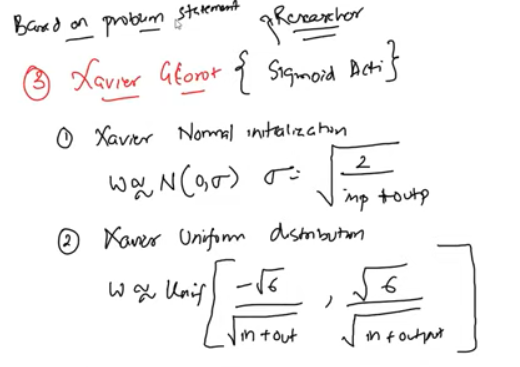 Based on problem statement Researcher
③ Xavier Glorot { Sigmoid Acti }
① Xavier Normal initialization
W ≈ N(0,σ) σ = √(2 / inp + outp)
② Xavier Uniform distribution
W ≈ Unif [ -√6 / √in + out , √6 / √in + output ]